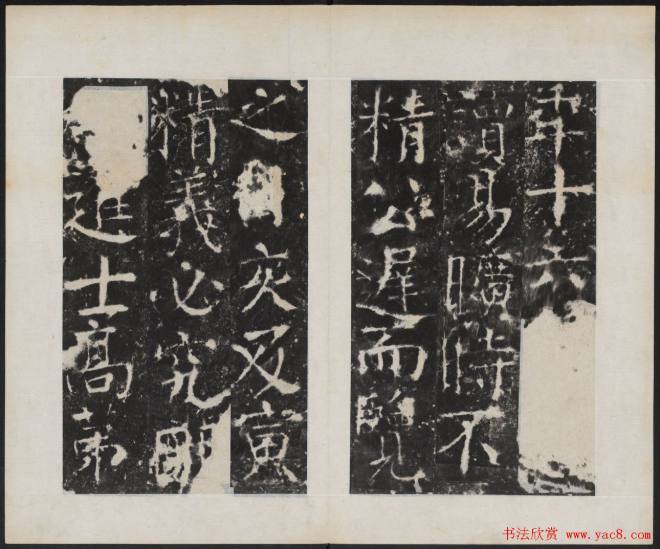 年十六
讀易曠時不
精公遲而
之旬又
精義必究
進士高第
书法欣赏 www.yac8.com